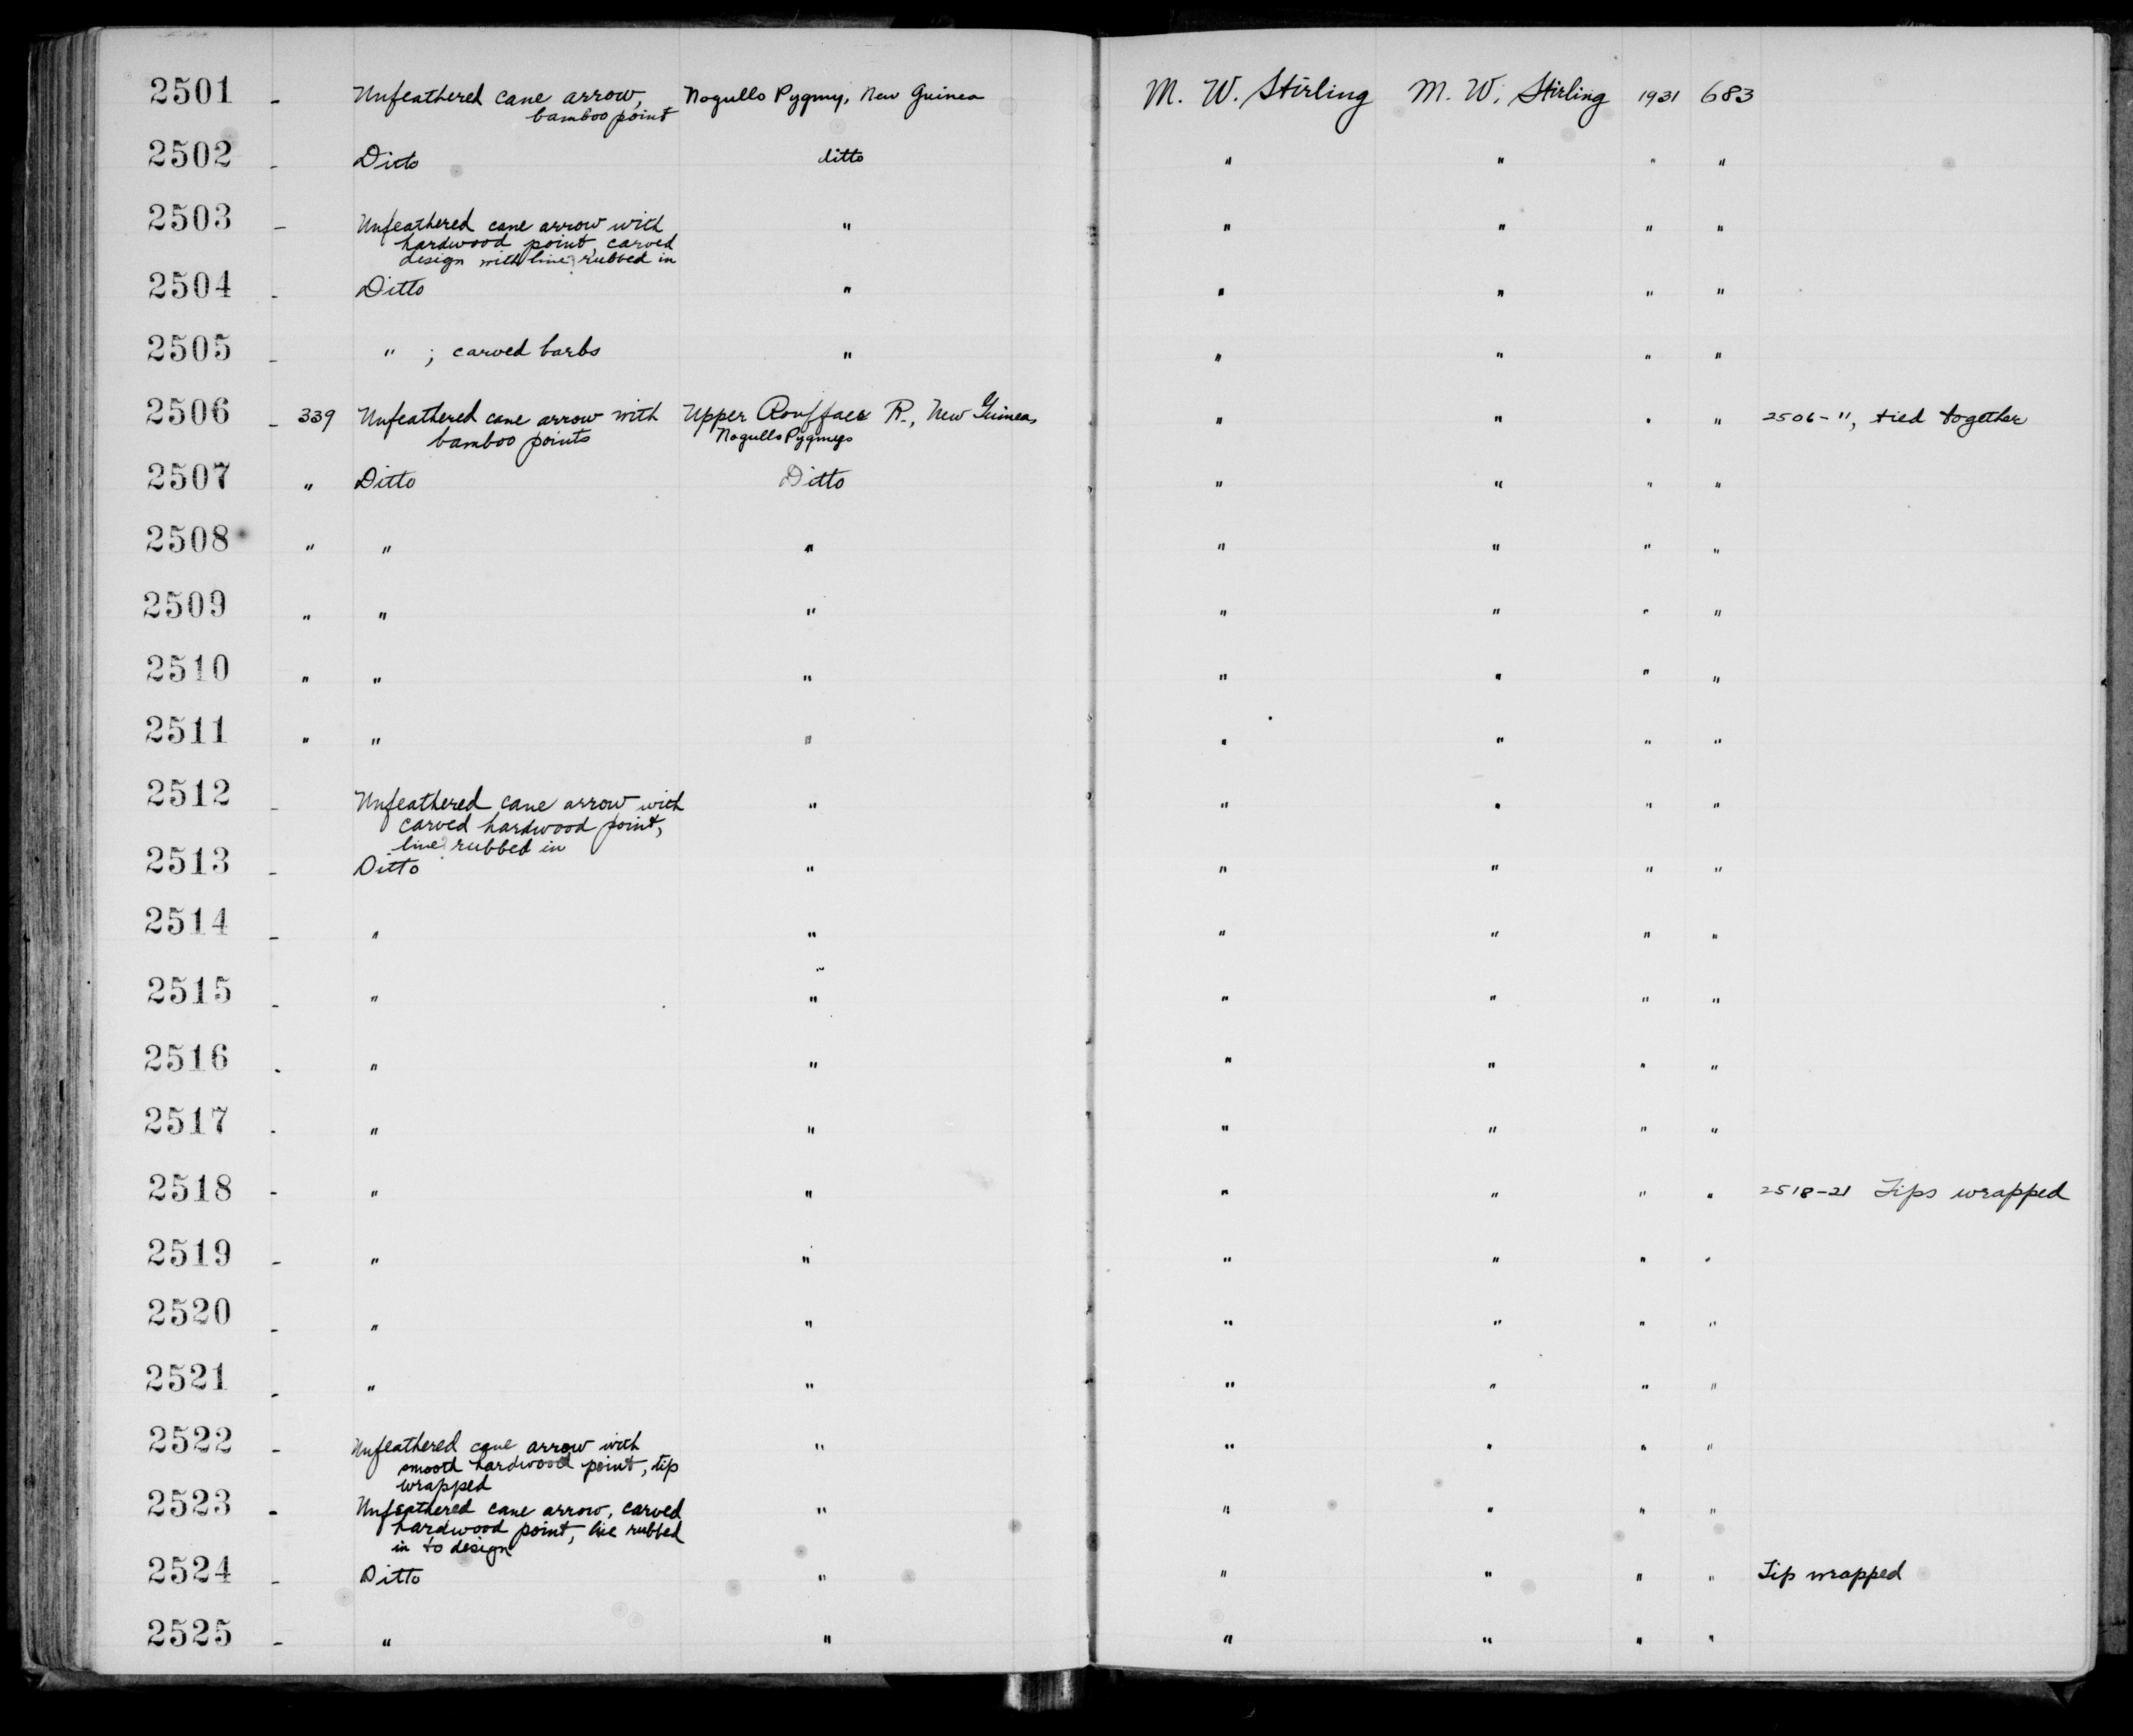 2501 - Unfeathered cane arrow, Nogullo Pygmy, New Guinea M. W. Stirling M. W. Stirling 1931 683
bamboo point
2502 - Ditto ditto " " " "
2503 - Unfeathered cane arrow with " " " " "
hardwood point, carved
design with lime rubbed in
2504 - Ditto " " " " "
2505 - " ; carved barbs " " " " "
2506 - 339 Unfeathered cane arrow with Upper Rouffaer R., New Guinea, " " " " 2506-11, tied together
bamboo points Nogullo Pygmys
2507 " Ditto Ditto " " " "
2508 " " " " " " "
2509 " " " " " " "
2510 " " " " " " "
2511 " " " " " " "
2512 - Unfeathered cane arrow with " " " " "
carved hardwood point,
lime rubbed in
2513 - Ditto " " " " "
2514 - " " " " " "
2515 - " " " " " "
2516 - " " " " " "
2517 - " " " " " "
2518 - " " " " " " 2518-21 Tips wrapped
2519 - " " " " " "
2520 - " " " " " "
2521 - " " " " " "
2522 - Unfeathered cane arrow with " " " " "
smooth hardwood point, tip
wrapped
2523 - Unfeathered cane arrow, carved " " " " "
hardwood point, lime rubbed
in to design
2524 - Ditto " " " " " Tip wrapped
2525 - " " " " " "